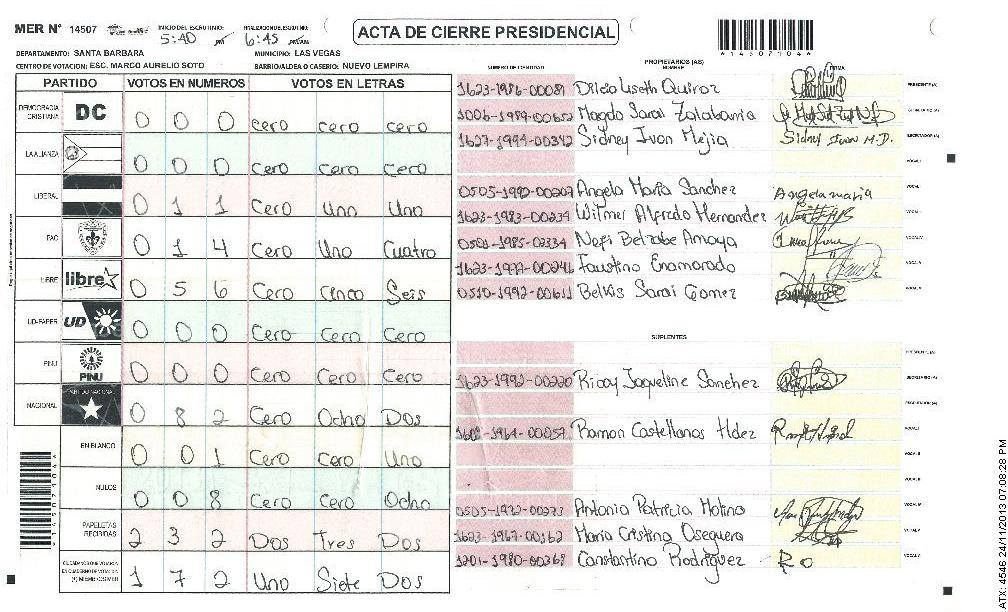 MER N° 14507 INICIO DEL ESCRUTINIO: 5:40 PM FINALIZACION DEL ESCRUTINIO: 6:45 PM/AM ACTA DE CIERRE PRESIDENCIAL *14507104*
DEPARTAMENTO: SANTA BARBARA MUNICIPIO: LAS VEGAS
CENTRO DE VOTACION: ESC. MARCO AURELIO SOTO BARRIO/ALDEA O CASERIO: NUEVO LEMPIRA
PARTIDO VOTOS EN NUMEROS VOTOS EN LETRAS
DEMOCRACIA CRISTIANA DC 0 0 0 cero cero cero
LA ALIANZA 0 0 0 Cero Cero Cero
LIBERAL 0 1 1 Cero Uno Uno
PAC 0 1 4 Cero Uno Cuatro
LIBRE libre 0 5 6 Cero Cinco Seis
UD-FAPER UD 0 0 0 Cero Cero Cero
PINU PINU 0 0 0 Cero Cero Cero
NACIONAL 0 8 2 Cero Ocho Dos
EN BLANCO 0 0 1 Cero Cero Uno
NULOS 0 0 8 Cero Cero Ocho
PAPELETAS RECIBIDAS 2 3 2 Dos Tres Dos
1 7 2 Uno Siete Dos
NUMERO DE IDENTIDAD PROPIETARIOS (AS) NOMBRE FIRMA
1623-1986-00081 Quiroz PRESIDENTE (A)
Magda Sarai
1627-1994-00342 Sidney Ivon Mejia Sidney Ivon M.D.
Angela Maria Sanchez Angela maria
1623-1983-00239 Wilmer Alfredo Hernandez
0501-1985-02334 Amaya
Faustino Enamorado
0510-1992-00611 Belkis Sarai Gomez
SUPLENTES
1623-1992-00220 Sanchez
Ramon Castellanos Hdez
Antonia Patricia Molino
1623-1967-00162 Maria Cristina Oseguera
1201-1980-00368 Constantino Rodriguez
*14507104*
ATX: 4546 24/11/2013 07:08:28 PM